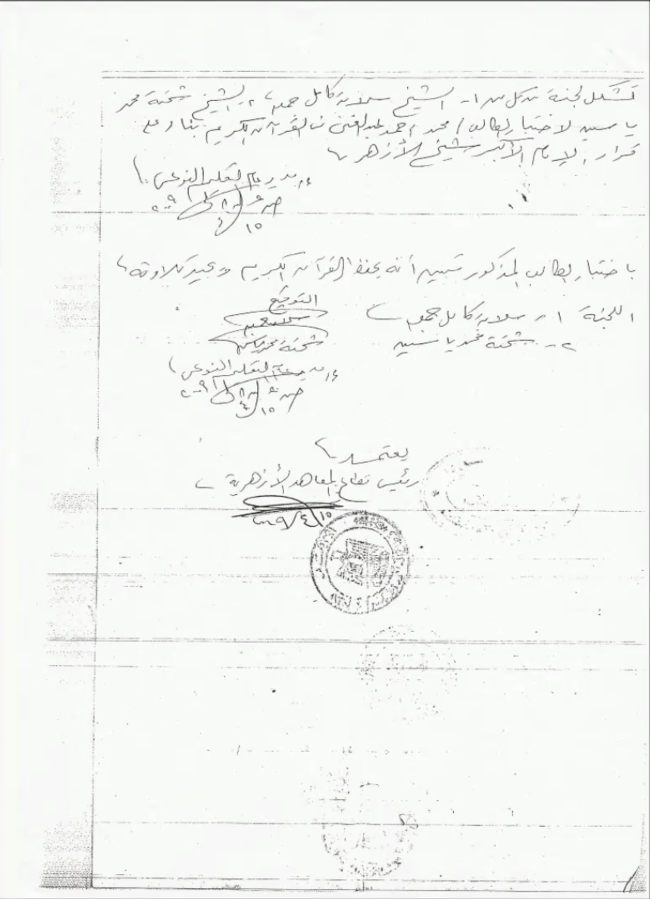 تشكل لجنة من كل من ١- الشيخ سلامة كامل جمعه ٢- الشيخ شحتة محمد
ياسين لاختبار الطالب / محمد احمد عبد الغنى فى القرآن الكريم بناء على
قرار الإمام الأكبر شيخ الأزهر
مدير عام التعليم النوعى
١٥/٤
باختبار الطالب المذكور تبين أنه يحفظ القرآن الكريم ويجيد تلاوته
التوقيع
اللجنة ١- سلامة كامل جمعه
٢- شحتة محمد ياسين
شحتة محمد ياسين
مدير عام التعليم النوعى
١٥/٤
يعتمد
رئيس قطاع المعاهد الأزهرية
١٥/٤/٢٠٠٩